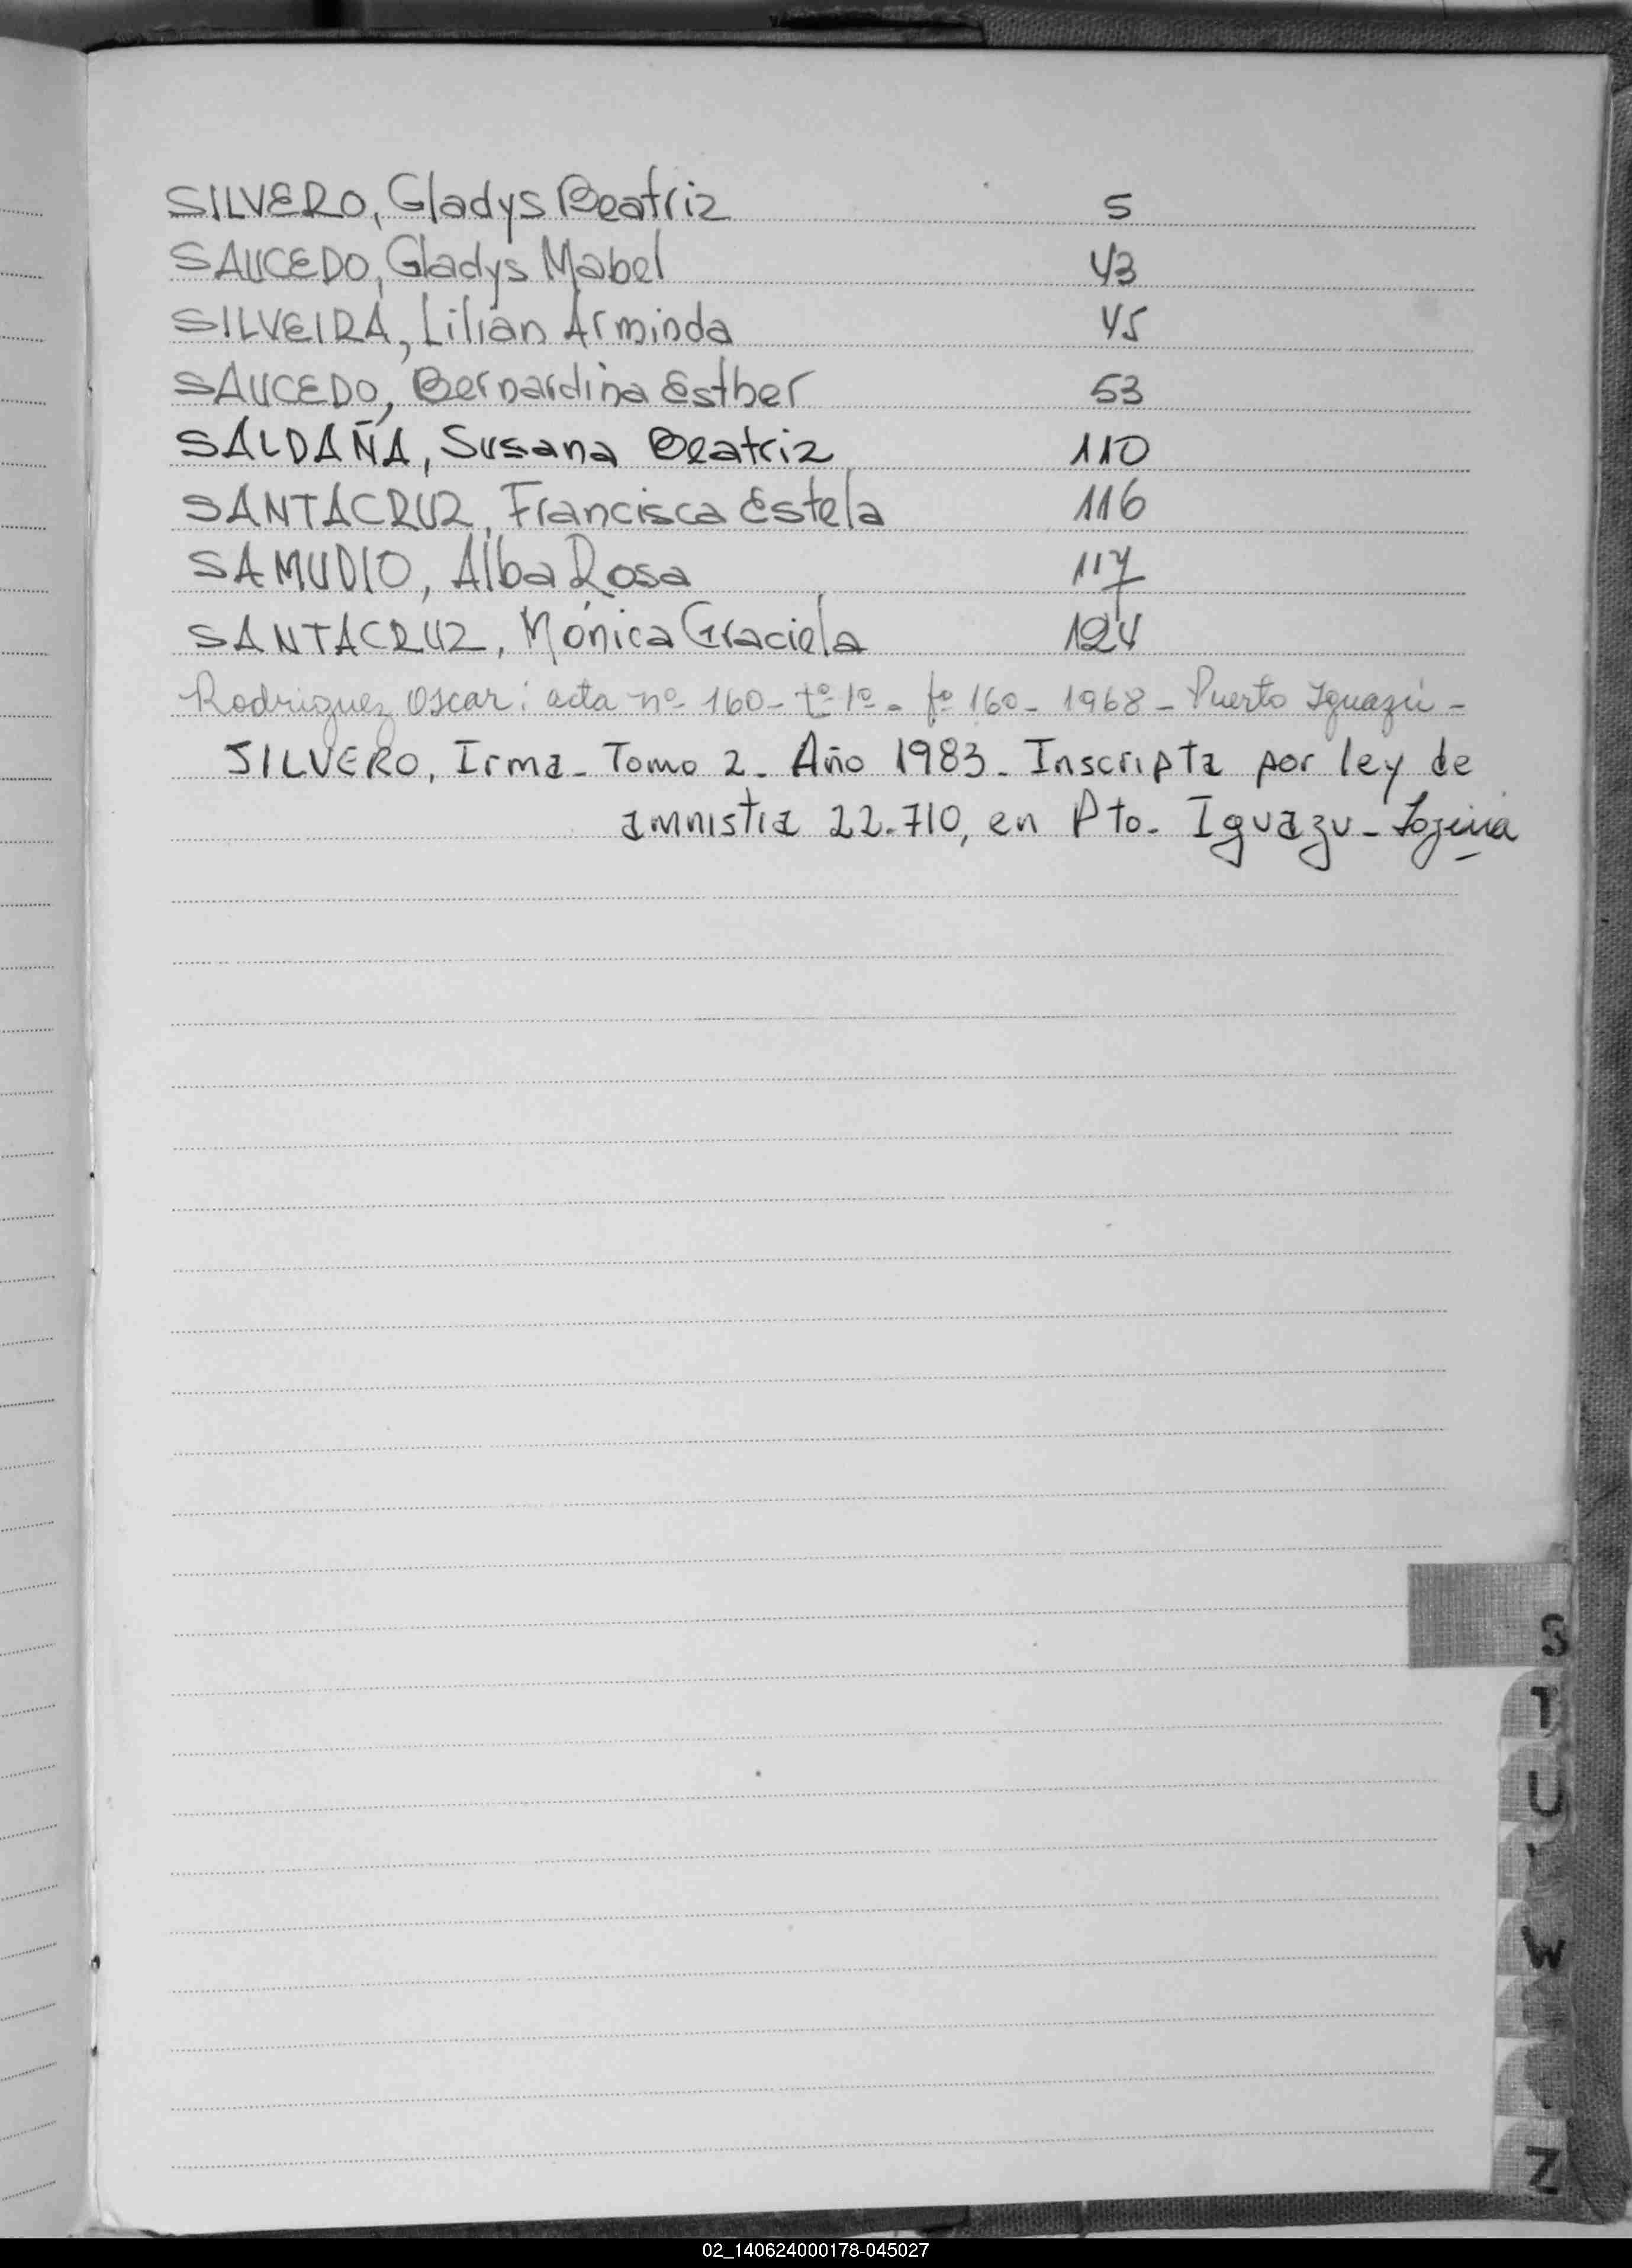 SILVERO, Gladys Beatriz 5
SAUCEDO, Gladys Mabel 43
SILVEIRA, Lilian Arminda 45
SAUCEDO, Bernardina Esther 53
SALDAÑA, Susana Beatriz 110
SANTACRUZ, Francisca Estela 116
SAMUDIO, Alba Rosa 117
SANTACRUZ, Mónica Graciela 124
Rodriguez Oscar: acta nº 160 - tº 1º - fº 160 - 1968 - Puerto Iguazú -
SILVERO, Irma - Tomo 2 - Año 1983 - Inscripta por ley de
amnistia 22.710, en Pto. Iguazu -
S
T
U
W
Z
02_140624000178-045027